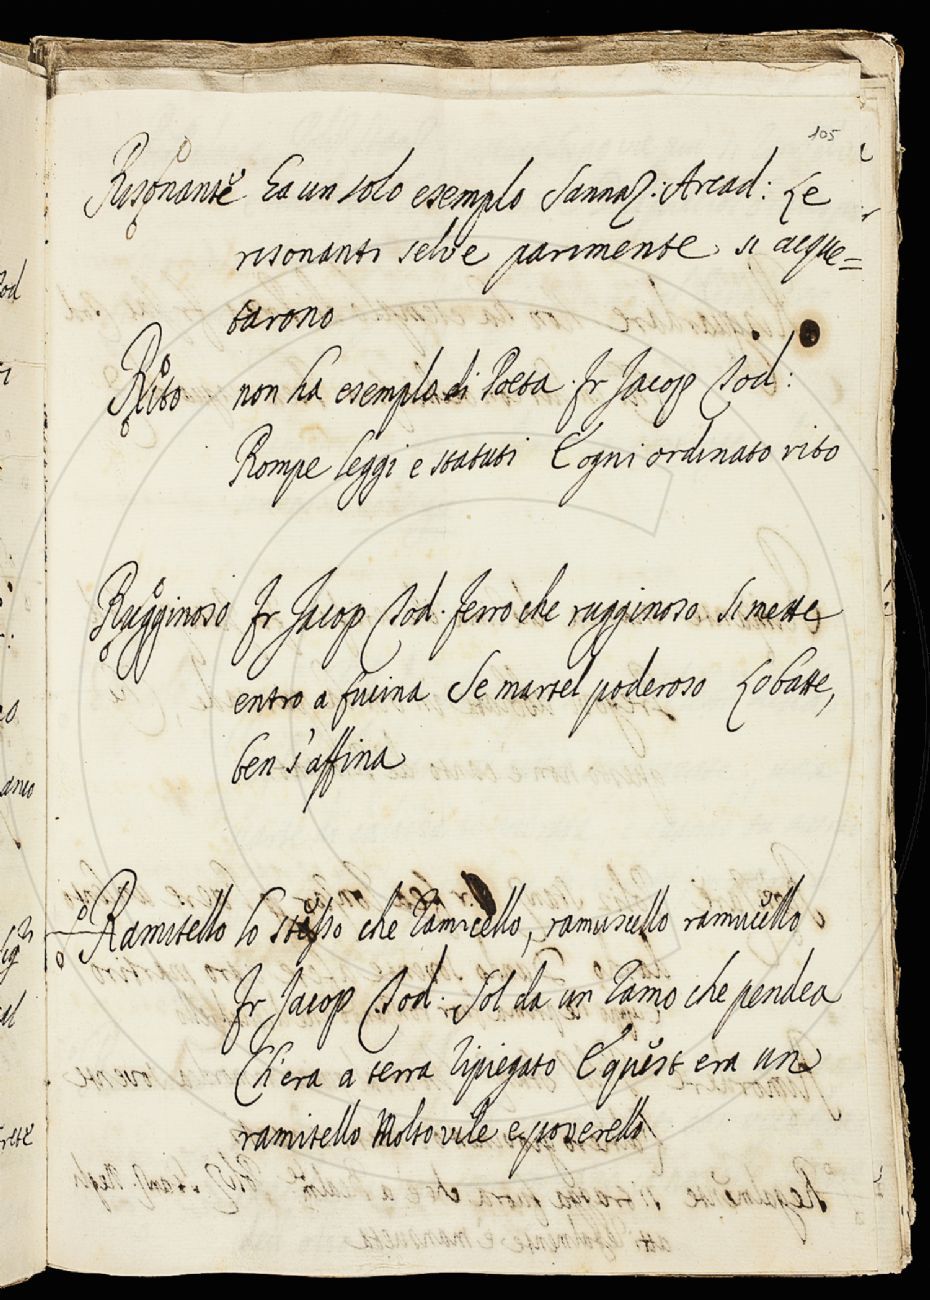 105
Risonante Ea un solo esempio Sannaz: Arcad: Le
risonanti selve parimente si acque=
tarono
Rito non ha esempio di Poeta. fr Jacop Tod:
Rompe leggi e statuti E ogni ordinato rito
Rugginoso fr Jacop Tod. ferro che rugginoso si mette
entro a fucina Se martel poderoso Lo batte,
ben s'affina
Ramitello lo stesso che ramicello, ramuscello ramucello
fr Jacop Tod. Sol da un ramo che pendea
Ch'era a terra ripiegato E quest era un
ramitello Molto vile e poverello